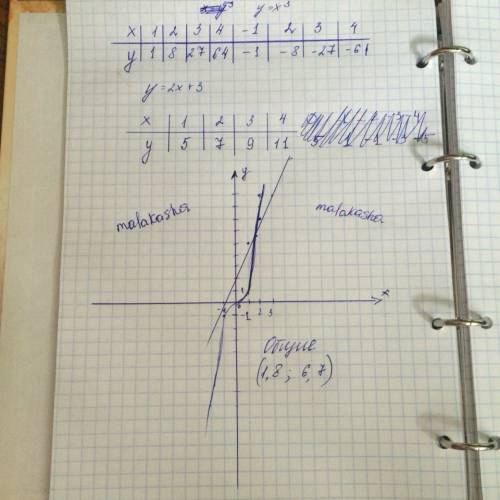 y=x³
x 1 2 3 4 -1 2 3 4
y 1 8 27 64 -1 -8 -27 -61
y=2x+3
x 1 2 3 4
y 5 7 9 11
y
malakasha
malakasha
x
1
-1 2 3
(1,8 ; 6,7)